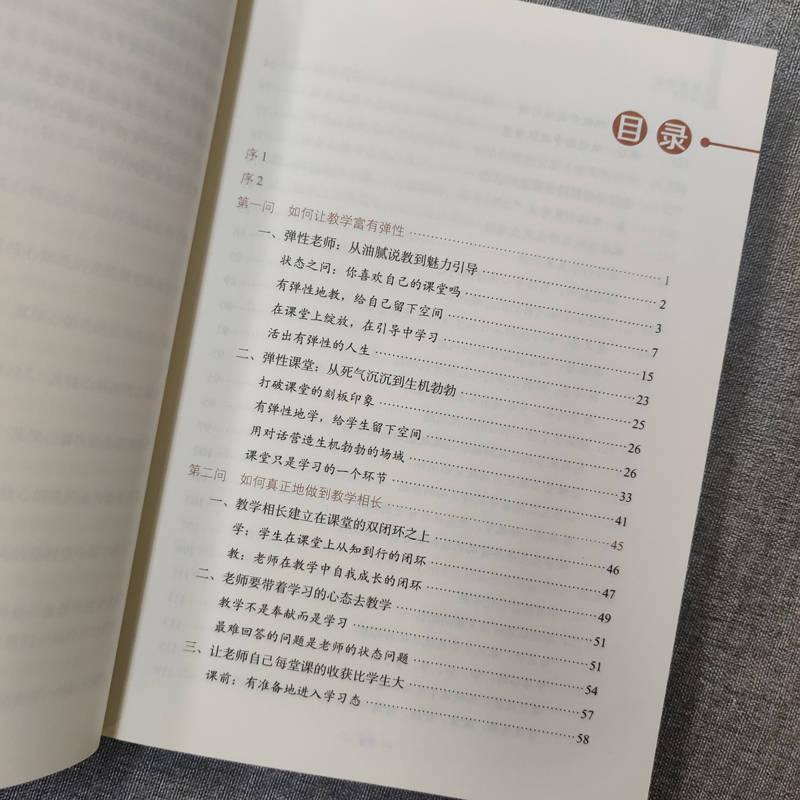 目录
序1
序2
第一问 如何让教学富有弹性……1
一、弹性老师：从油腻说教到魅力引导……2
状态之问：你喜欢自己的课堂吗……3
有弹性地教，给自己留下空间……7
在课堂上绽放，在引导中学习……15
活出有弹性的人生……23
二、弹性课堂：从死气沉沉到生机勃勃……25
打破课堂的刻板印象……26
有弹性地学，给学生留下空间……26
用对话营造生机勃勃的场域……33
课堂只是学习的一个环节……41
第二问 如何真正地做到教学相长……45
一、教学相长建立在课堂的双闭环之上……46
学：学生在课堂上从知到行的闭环……47
教：老师在教学中自我成长的闭环……49
二、老师要带着学习的心态去教学……51
教学不是奉献而是学习……51
最难回答的问题是老师的状态问题……54
三、让老师自己每堂课的收获比学生大……57
课前：有准备地进入学习态……58